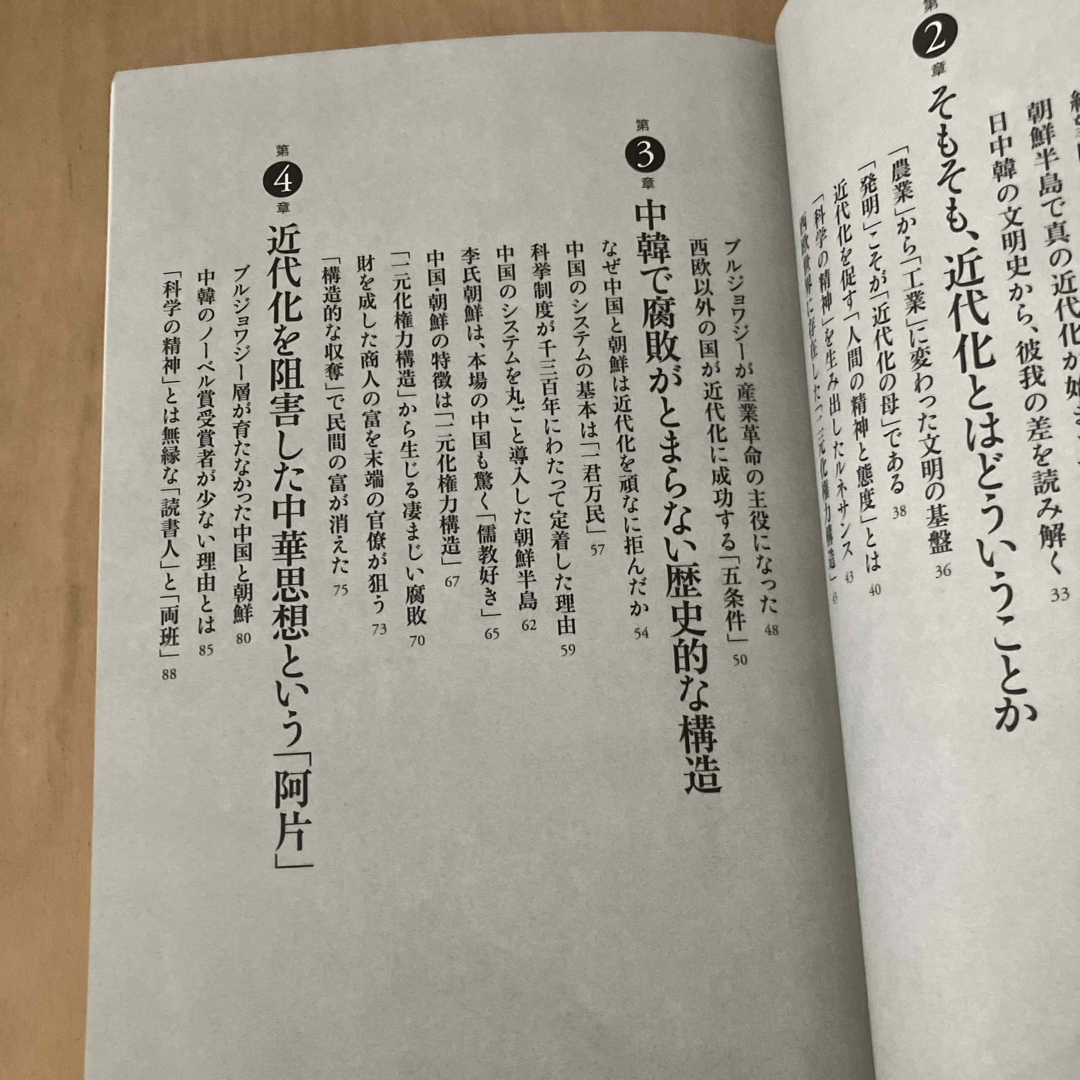 朝鮮半島で真の近代化が始
日中韓の文明史から、彼我の差を読み解く 33
第2章 そもそも、近代化とはどういうことか
「農業」から「工業」に変わった文明の基盤 36
「発明」こそが「近代化の母」である 38
近代化を促す「人間の精神と態度」とは 40
「科学の精神」を生み出したルネサンス 43
西欧世界に存在した「二元化権力構造」 45
ブルジョワジーが産業革命の主役になった 48
西欧以外の国が近代化に成功する「五条件」 50
第3章 中韓で腐敗がとまらない歴史的な構造
なぜ中国と朝鮮は近代化を頑なに拒んだか 54
中国のシステムの基本は「一君万民」 57
科挙制度が千三百年にわたって定着した理由 59
中国のシステムを丸ごと導入した朝鮮半島 62
李氏朝鮮は、本場の中国も驚く「儒教好き」 65
中国・朝鮮の特徴は「一元化権力構造」 67
「一元化権力構造」から生じる凄まじい腐敗 70
財を成した商人の富を末端の官僚が狙う 73
「構造的な収奪」で民間の富が消えた 75
第4章 近代化を阻害した中華思想という「阿片」
ブルジョワジー層が育たなかった中国と朝鮮 80
中韓のノーベル賞受賞者が少ない理由とは 85
「科学の精神」とは無縁な「読書人」と「両班」 88